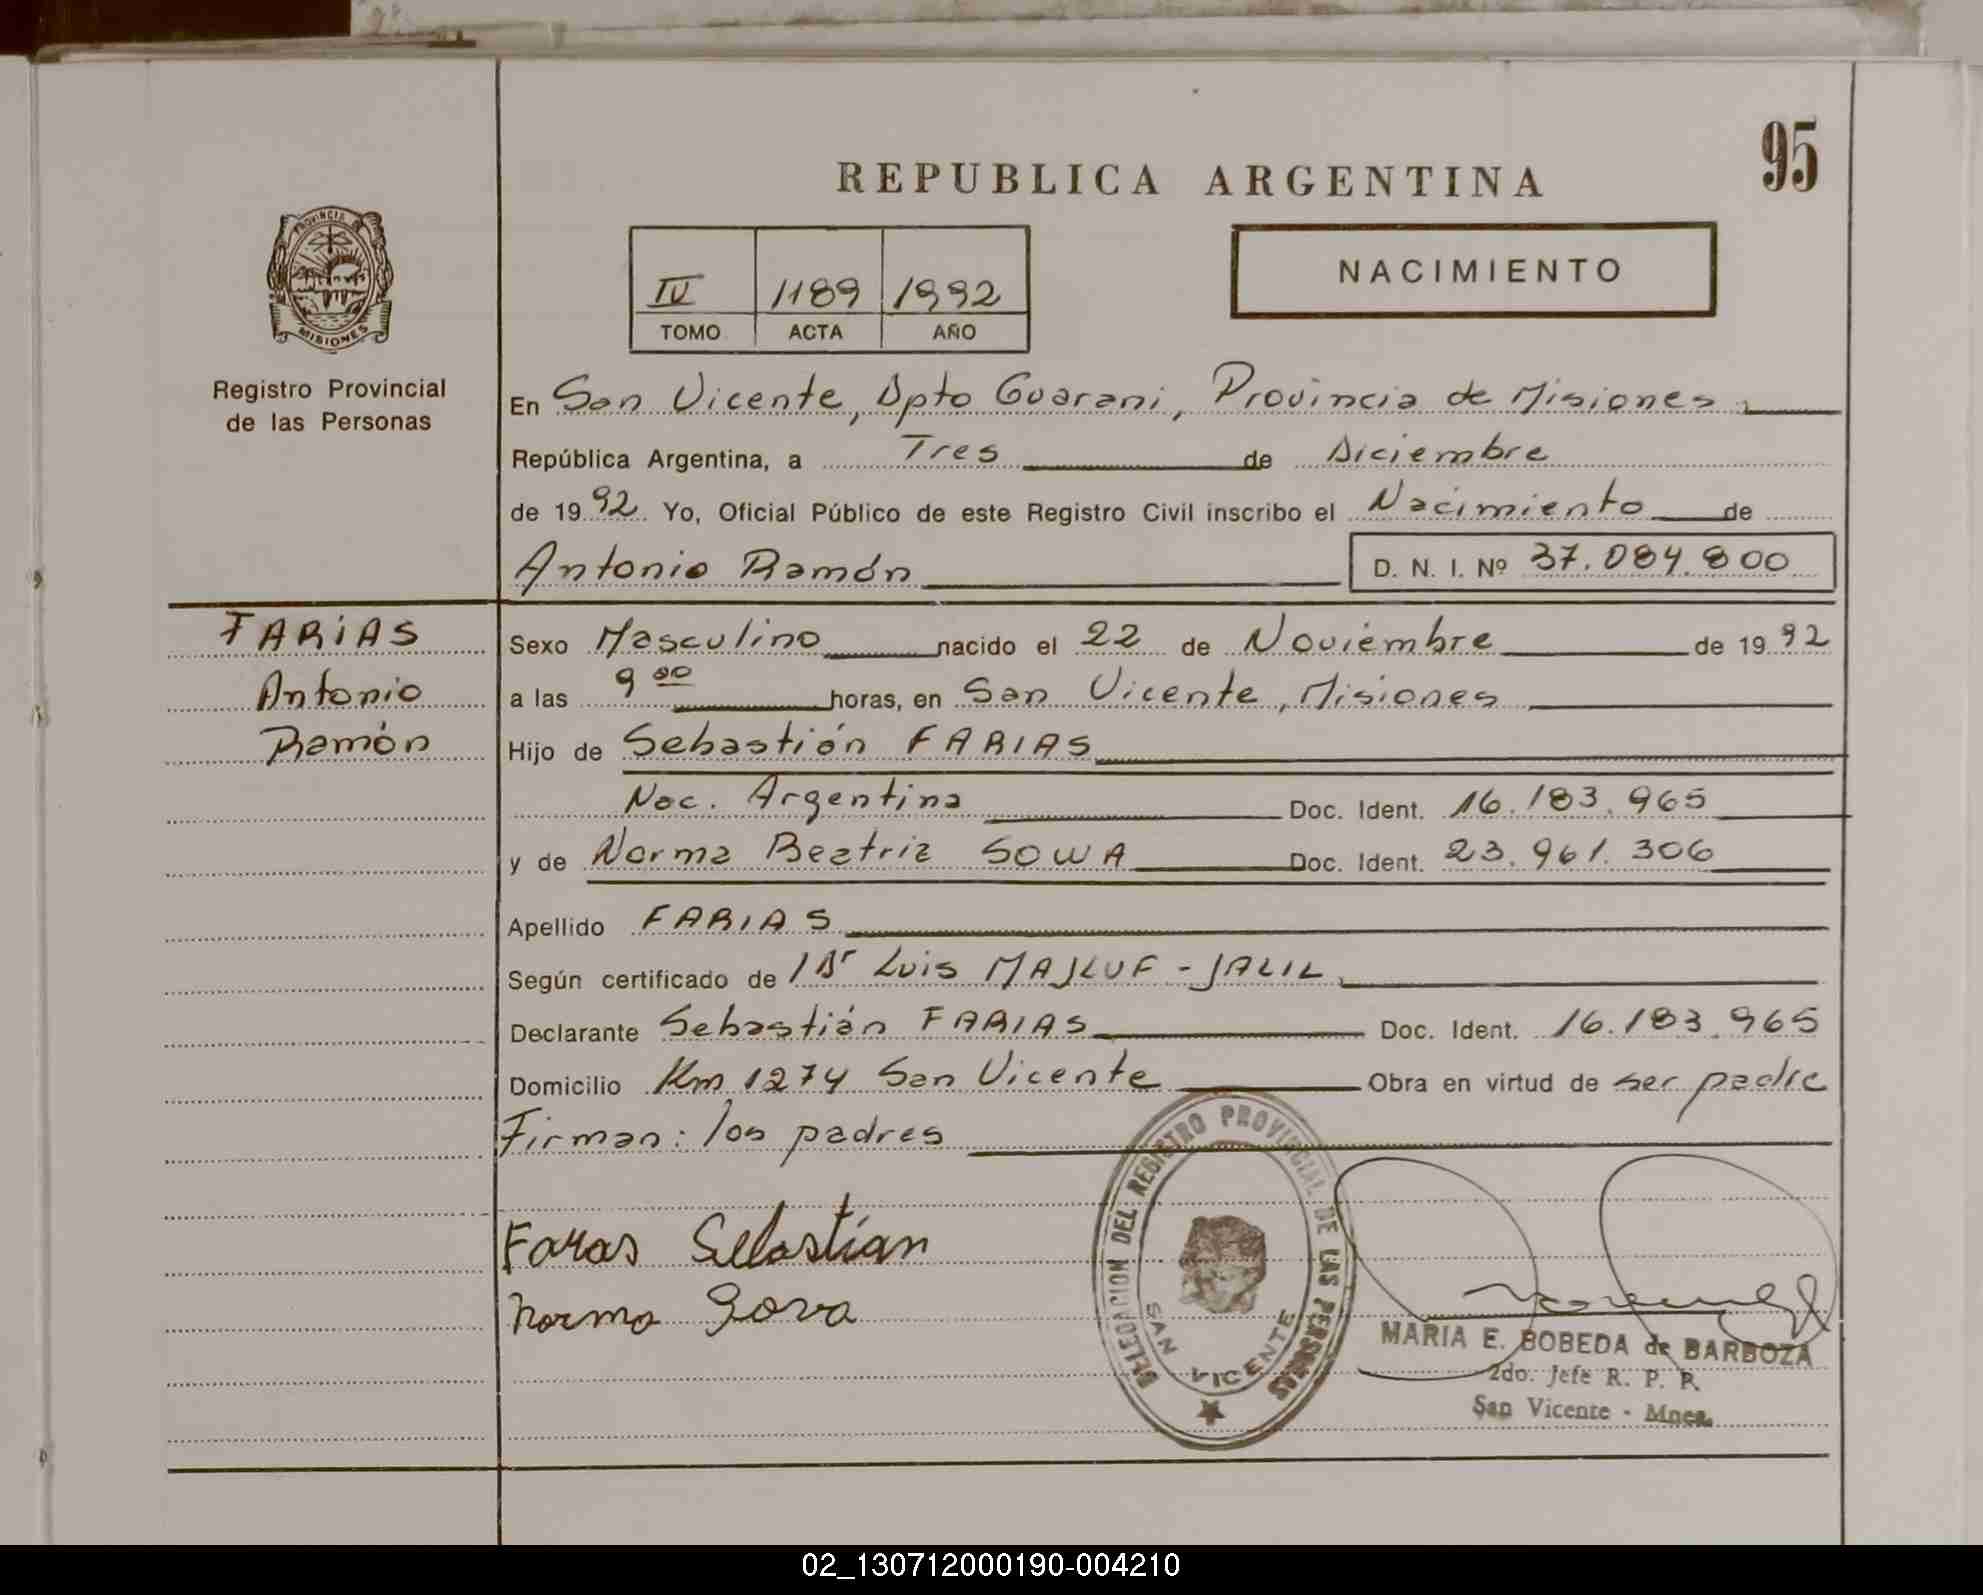 95
REPUBLICA ARGENTINA
PROVINCIA DE
MISIONES
Registro Provincial
de las Personas
IV 1189 1992
TOMO ACTA AÑO
NACIMIENTO
En San Vicente, Dpto Guarani, Provincia de Misiones,
República Argentina, a Tres de Diciembre
de 1992 Yo, Oficial Público de este Registro Civil inscribo el Nacimiento de
Antonio Ramón D. N. I. Nº 37.084.800
FARIAS
Antonio
Ramón
Sexo Masculino nacido el 22 de Noviembre de 1992
a las 9 00 horas, en San Vicente, Misiones
Hijo de Sebastián FARIAS
Nac. Argentina Doc. Ident. 16.183.965
y de Norma Beatriz SOWA Doc. Ident. 23.961.306
Apellido FARIAS
Según certificado de /Dr Luis MAJLUF - JALIL
Declarante Sebastián FARIAS Doc. Ident. 16.183.965
Domicilio Km 1274 San Vicente Obra en virtud de ser padre
Firman: los padres
Faras Sebastian
Norma Sova
DELEGACION DEL REGISTRO PROVINCIAL DE LAS PERSONAS
SAN VICENTE
MARIA E. BOBEDA de BARBOZA
2do. Jefe R. P. P.
San Vicente - Mnes.
02_130712000190-004210